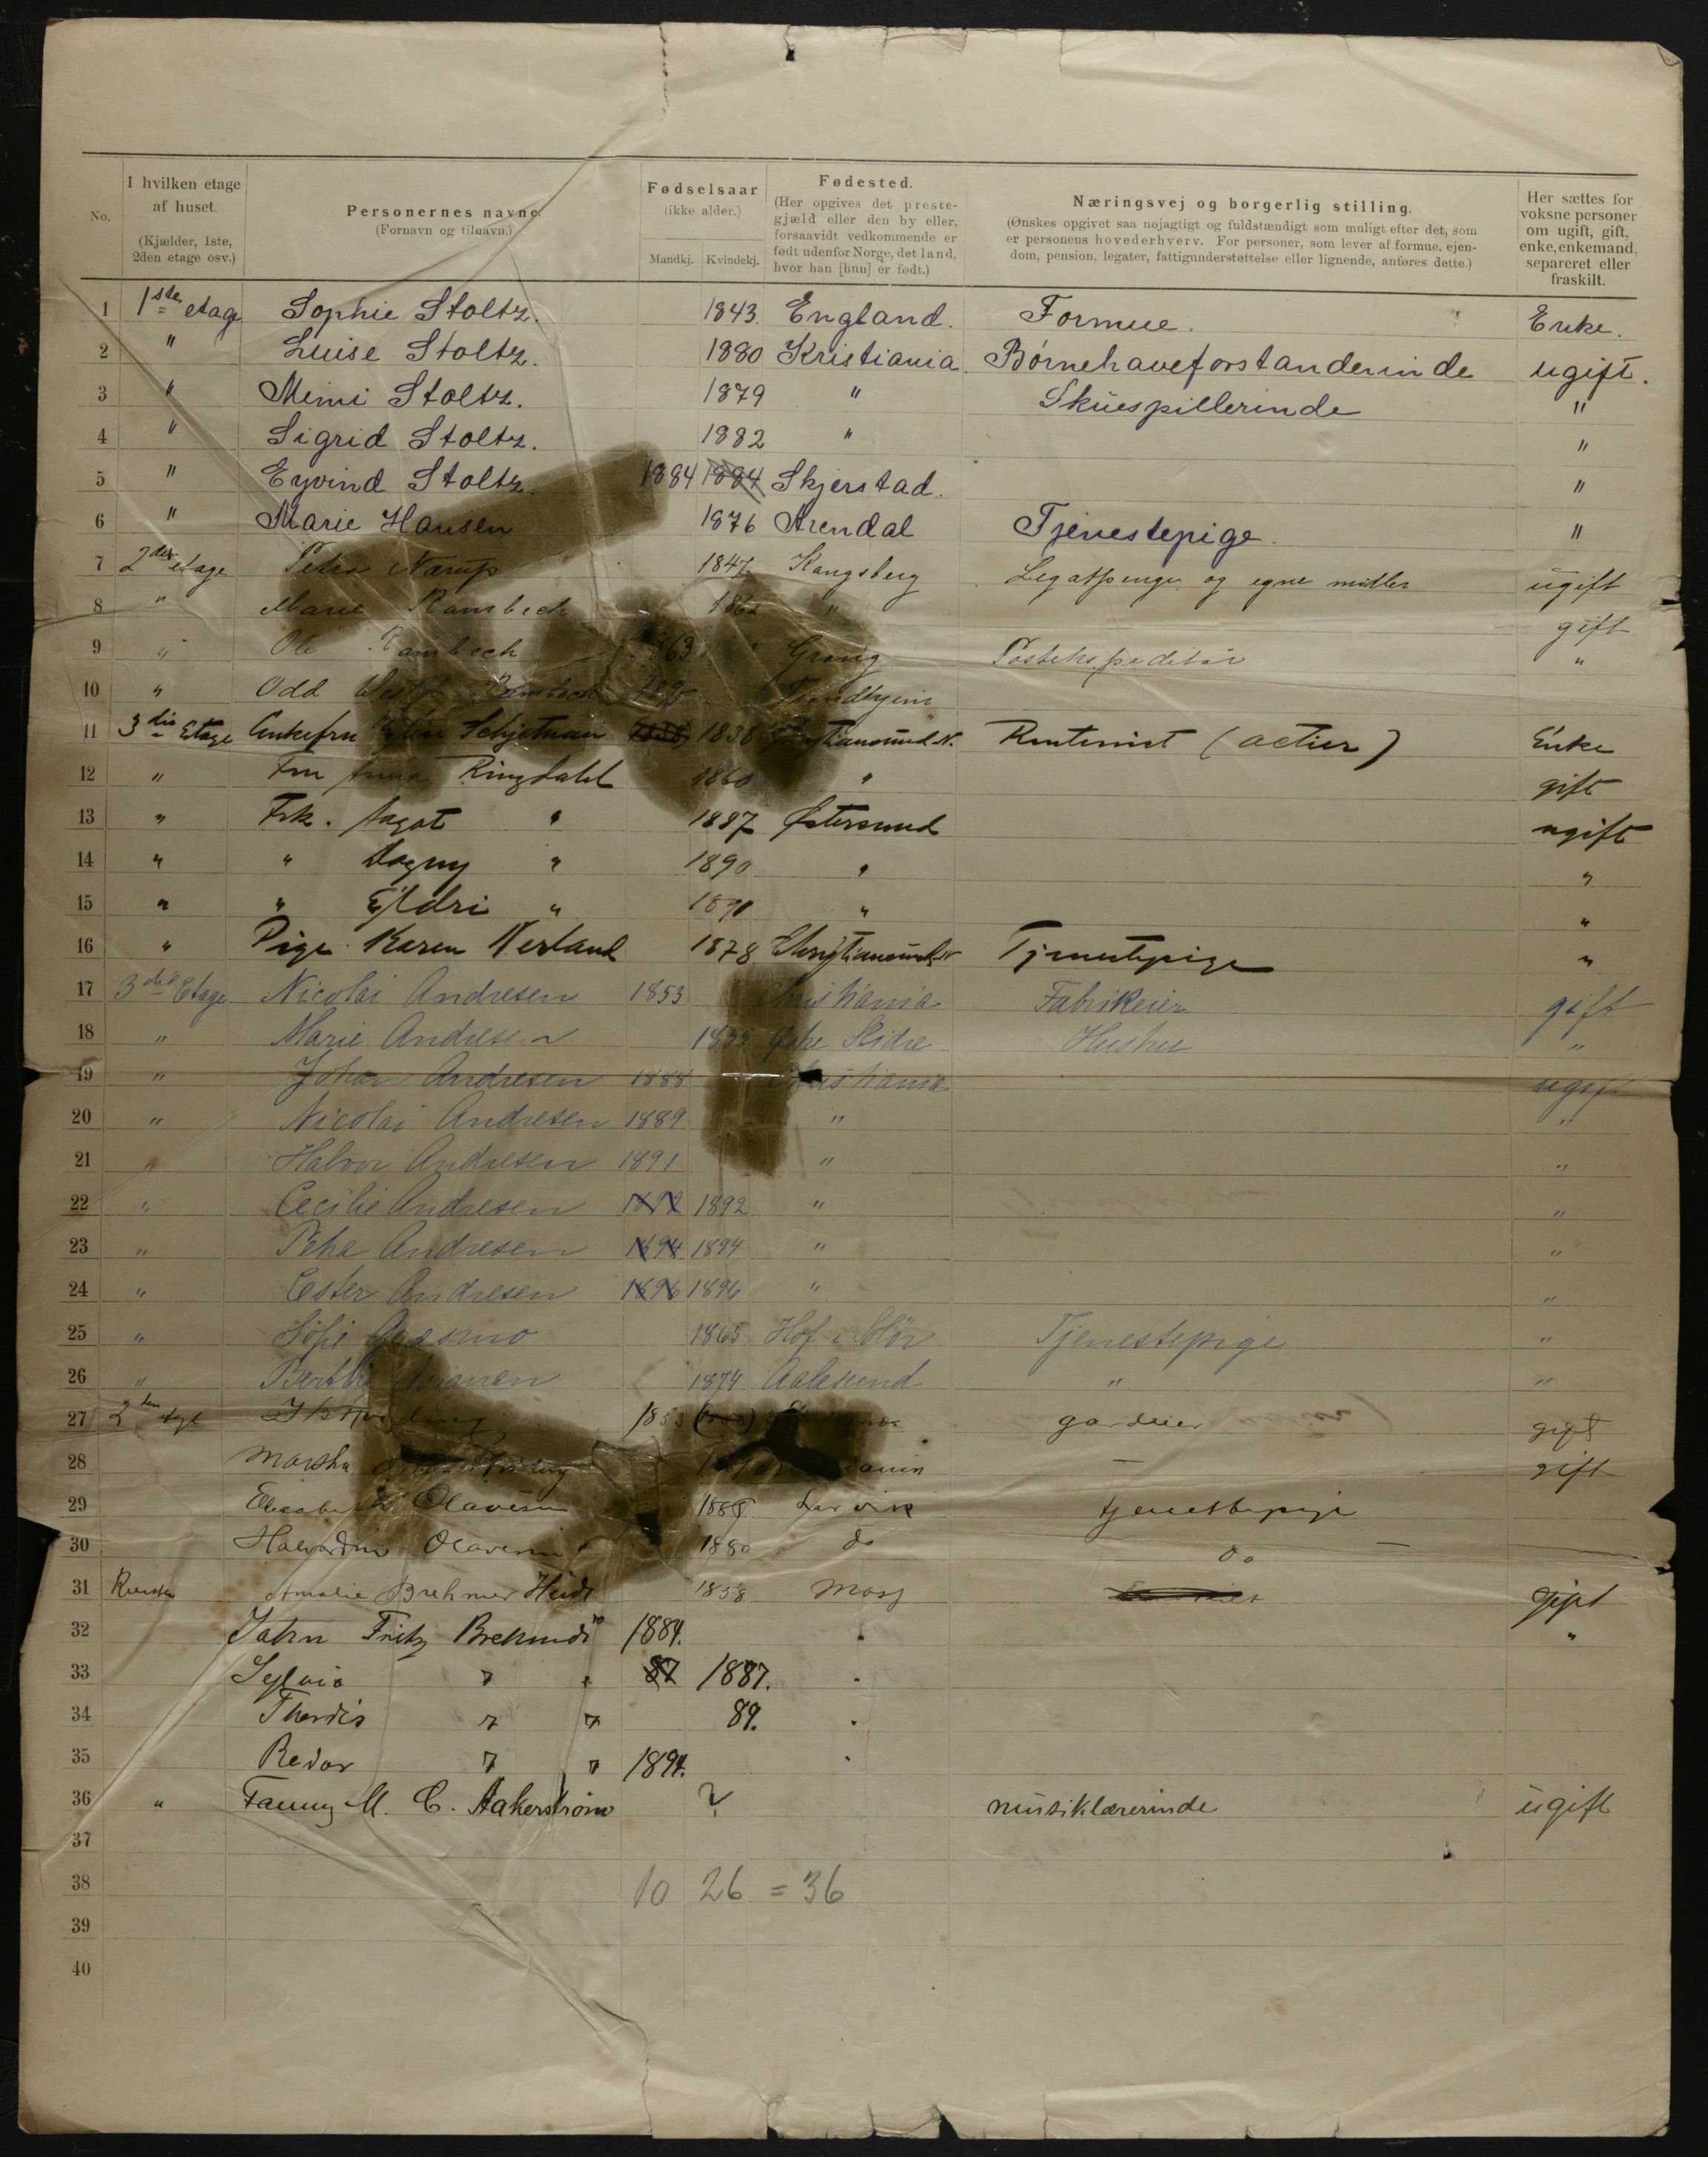 No.
I hvilken etage af huset. (Kjælder, 1ste, 2den etage osv.)
Personernes navne. (Fornavn og tilnavn.)
Fødselsaar (ikke alder.) Mandkj. Kvindekj.
Fødested. (Her opgives det prestegjæld eller den by eller, forsaavidt vedkommende er født udenfor Norge, det land, hvor han [hun] er født.)
Næringsvej og borgerlig stilling. (Ønskes opgivet saa nøjagtigt og fuldstændigt som muligt efter det, som er personens hovederhverv. For personer, som lever af formue, ejendom, pension, legater, fattigunderstøttelse eller lignende, anføres dette.)
Her sættes for voksne personer om ugift, gift, enke, enkemand, separeret eller fraskilt.
1 1ste etage Sophie Stoltz. 1843. England. Formue. Enke.
2 " Luise Stoltz. 1880 Kristiania Børnehaveforstanderinde ugift.
3 " Mimi Stoltz. 1879 " Skuespillerinde "
4 " Sigrid Stoltz. 1882 " "
5 " Eyvind Stoltz. 1884 1884 Skjerstad. "
6 " Marie Hansen 1876 Arendal Tjenestepige. "
7 2den etage Petra Nærup 1847 Kongsberg Legatpenge og egne midler ugift
8 " Marie Rambech 186 " gift
9 " Ole Rambech 63 Grong Postekspeditør "
10 " Odd Rambech Trondhjem
11 3die Etage Enkefru Schjetnan 1838 1838 Christiansund N. Rentenist (actier) Enke
12 " Fru Anna Ringdahl 1860 " gift
13 " Frk. Aagot " 1887 Østersund ugift
14 " " Dagny " 1890 " "
15 " " Eldri " 189 " "
16 " Pige Karen Nesland 1878 Christiansund N Tjenestepige "
17 3die Etage Nicolai Andresen 1853 Christiania Fabrikeier gift
18 " Marie Andresen 1855 Østre Slidre Hustru "
19 " Johan Andresen 1888 Christiania ugift
20 " Nicolai Andresen 1889 " "
21 " Halvor Andresen 1891 " "
22 " Cecilie Andresen 1892 1892 " "
23 " Petra Andresen 1894 1894 " "
24 " Ester Andresen 1896 1896 " "
25 " Sofie Aasmo 1865 Hof i Solør Tjenestepige "
26 " Berthe 1874 Aalesund " "
27 2den etage 1853 gardeier gift
28 Marsha gift
29 Elisabeth Olavesen 188 Larvik tjenestepige
30 Halvardine Olavesen 1880 do do
31 Amalie Brehmer Heide 1858 Moss gift
32 John Fritz 1884. " "
33 Sylvia " " 87 1887. "
34 Thordis " " 89. "
35 Redar " " 1894. "
36 " Fanny M. C. Aakerstrøm ? musiklærerinde ugift
37
38 10 26 = 36
39
40